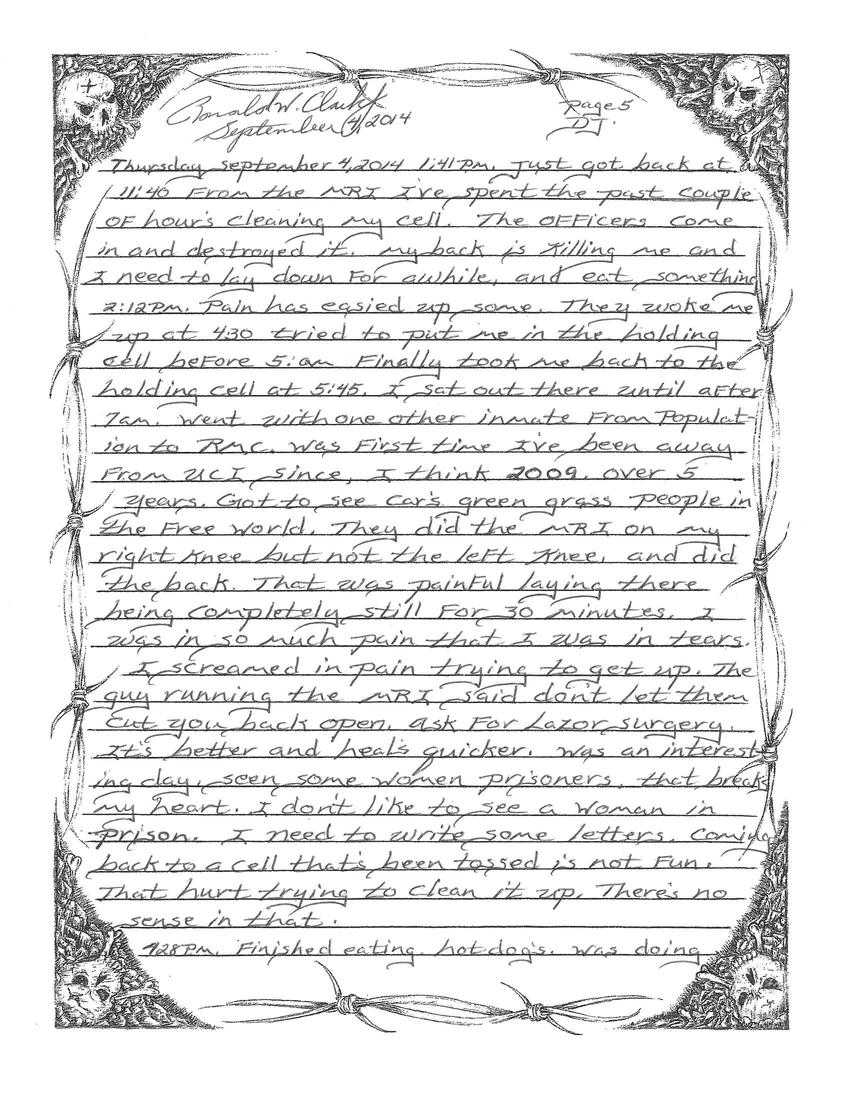 Ronald W. Clark Jr
September 4, 2014
Page 5
DJ.
Thursday september 4, 2014 1:41 PM. Just got back at
11:40 From the MRI I've spent the past couple
OF hour's cleaning my cell. The OFFicers come
in and destroyed it. my back is killing me and
I need to lay down For awhile, and eat something
2:12 PM. Pain has easied up some. They woke me
up at 430 tried to put me in the holding
cell beFore 5:am Finally took me back to the
holding cell at 5:45. I sat out there until aFter
7am. went with one other inmate From Populat-
ion to RMC. was First time I've been away
From UCI since, I think 2009. over 5
years. Got to see car's green grass people in
the Free world. They did the MRI on my
right knee but not the leFt knee, and did
the back. That was painFul laying there
being completely still For 30 minutes. I
was in so much pain that I was in tears.
I screamed in pain trying to get up. The
guy running the MRI said don't let them
cut you back open, ask For Lazor surgery.
It's better and heal's quicker. was an interest-
ing day, seen some women prisoners, that breaks
my heart. I don't like to see a woman in
prison. I need to write some letters. Coming
back to a cell that's been tossed is not Fun.
That hurt trying to clean it up. There's no
sense in that.
728 PM. Finished eating hotdog's. was doing